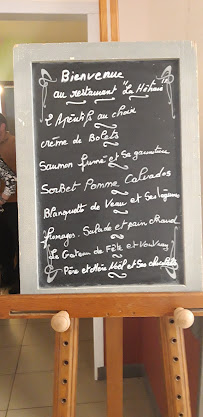 Bienvenue
au restaurant "La Hêtraie"
L'Apéritif au choix
crème de Bolets
Saumon fumé et Sa garniture
Sorbet Pomme Calvados
Blanquette de Veau et Ses légumes
fromages. Salade et pain chaud
Le Gateau de Fête et Vouvray
Père et Mère Noël et Ses